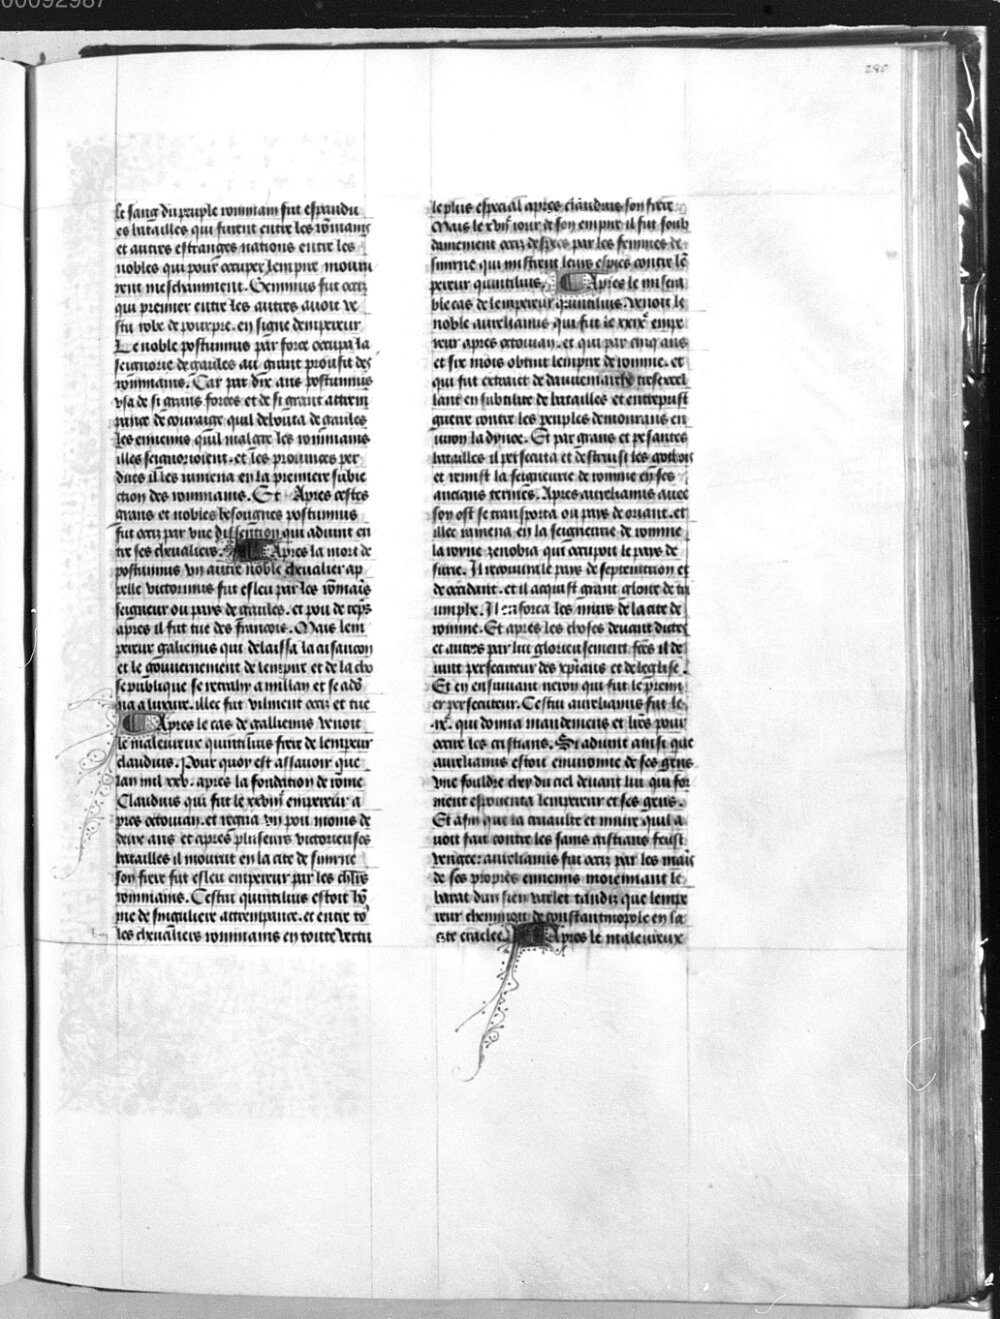 00092987
280
le sang du peuple rommain fut espandu
es batailles qui furent entre les rõmains
et autres estranges nations entre les
nobles qui pour occuper lempire mouru
rent meschamment. Geminus fut occiz
qui premier entre les autres auoit ve
stu robe de pourpre. en signe dempereur
Le noble postumus par force occupa la
seignorie de gaules au grant proufit des
rommains. Car par dix ans postumus
vsa de si grans forces et de si grant attrem
pance de couraige quil debouta de gaules
les ennemis quil malgre les rommains
illec seignorioient. et les prouinces per
dues il les ramena en la premiere subie
ction des rommains. Et Apres cestes
grans et nobles besoignes postumus
fut occiz par vne dissention qui aduint en
tre ses cheualiers. Apres la mort de
postumus vn autre noble cheualier ap
pelle victorinus fut esleu par les rõmais
seigneur ou pays de gaules. et pou de tẽps
apres il fut tue des francois. Mais lem
pereur galienus qui delaissa la cusancon
et le gouuernement de lempire et de la cho
se publique se retrahy a millan et se adõ
na a luxure. illec fut vilment occiz et tue
Apres le cas de gallienus venoit
le maleureux quintilius frere de lempeur
claudius. Pour quoy est assauoir que
lan mil xxv. apres la fondation de rome
Claudius qui fut le xxviijͤ empereur a
pres octouian. et regna vn pou moins de
deux ans et apres plusieurs victorieuses
batailles il mourut en la cite de smirne
son frere fut esleu empereur par les chlrs
rommains. Cestui quintilius estoit hõ
me de singuliere attrempance. et entre to9
les cheualiers rommains en toute vertu
le plus especial apres claudius son frere
Mais le xvijͤ iour de son empire il fut soub
dainement occiz despees par les femmes de
smirne qui mistrent leurs espies contre lẽ
pereur quintilius. Apres le misera
ble cas de lempereur quintilius. venoit le
noble aurelianus qui fut le xxixͤ empe
reur apres octouian. et qui par cinq ans
et six mois obtint lempire de romme. et
qui fut extraict de dannemarche tresexcel
lant en subtilite de batailles et entreprist
guerre contre les peuples demourans en
uiron la dynoe. Et par grans et pesantes
batailles il persecuta et destruist les gothois
et remist la seigneurie de romme en ses
anciens termes. Apres aurelianus auec
son ost se transporta ou pays de oriant. et
illec ramena en la seigneurie de romme
la royne zenobia qui occupoit le pays de
surie. Il recouura le pays de septentrion et
de occidant. et il acquist grant gloire de tri
umphe. Il enforca les murs de la cite de
romme. Et apres les choses deuant dictes
et autres par lui glorieusement fcẽs il de
uint persecuteur des xpians et de leglise.
Et en ensuiuant neron qui fut le premi
er persecuteur. Cestui aurelianus fut le
.ixͤ. qui donna mandemens et lrẽs pour
occire les cristians. Si aduint ainsi que
aurelianus estoit enuironne de ses gens
vne fouldre chey du ciel deuant lui qui for
ment espouenta lempereur et ses gens.
Et afin que la cruaulte et iniure quil a
uoit fait contre les sains cristians feust
vengee: aurelianus fut occiz par les mais
de ses propres ennemis moiennant le
barat dun sien varlet tandiz que lempe
reur cheminoit de constantinople en la
cite eraclee. Apres le maleureux